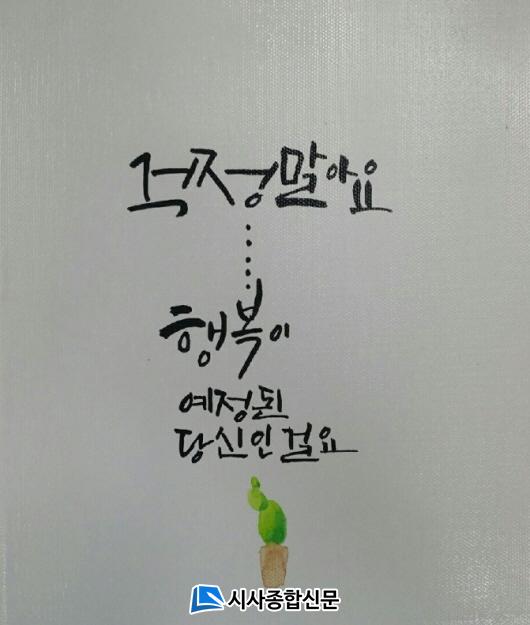 걱정말아요
행복이
예정된
당신인걸요
시사종합신문